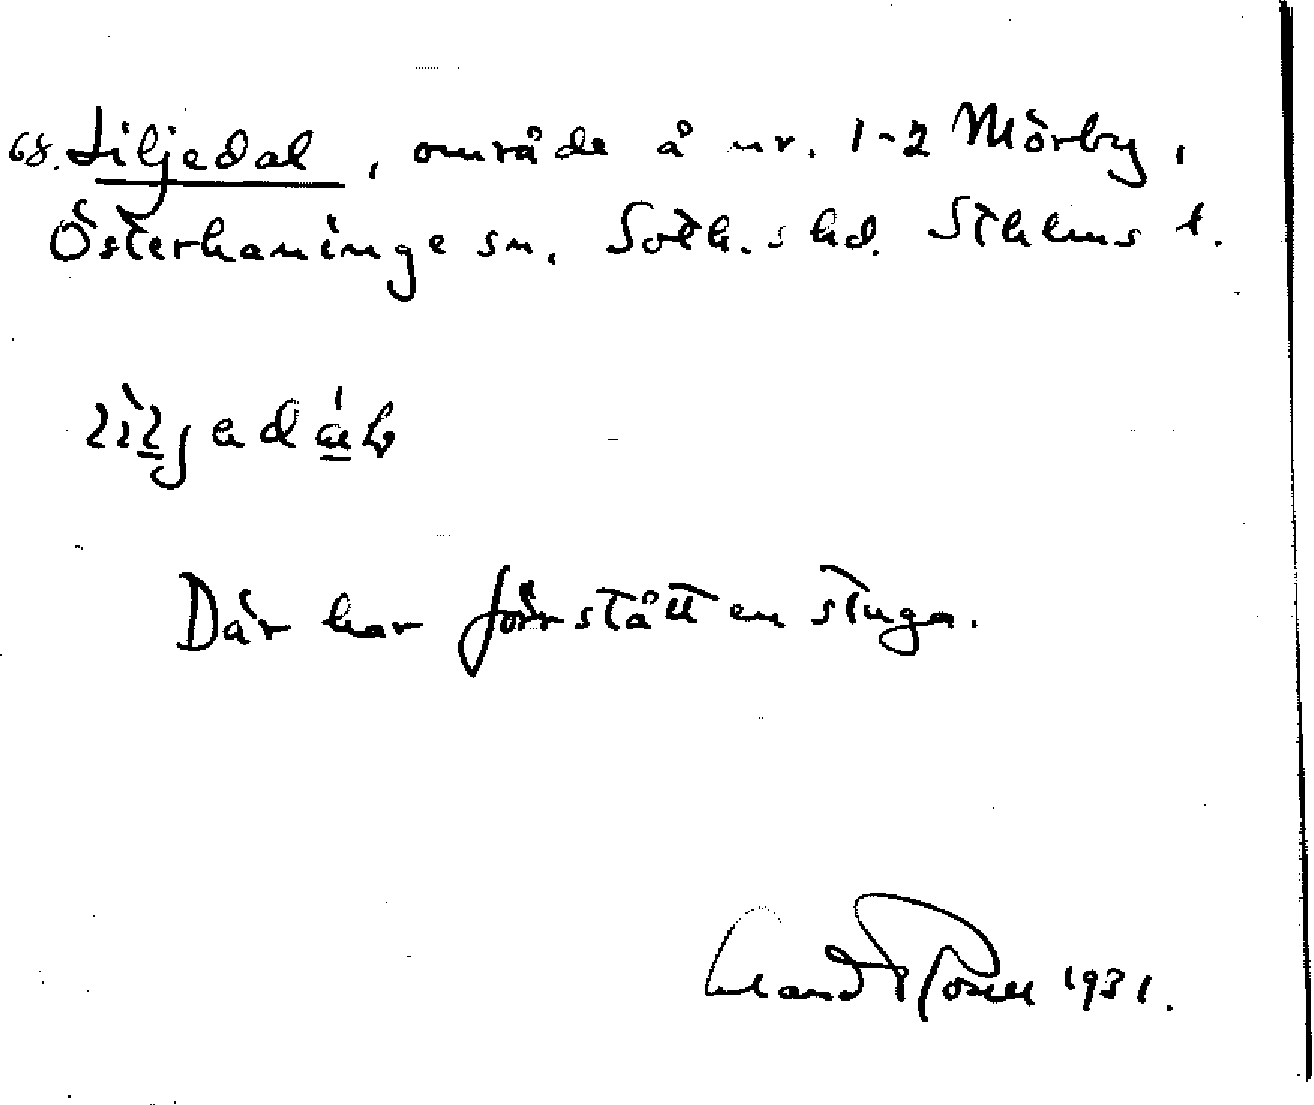 68. Liljedal, område å nr. 1-2 Mörby,
Österhaninge sn. Soth.s hd. Sthlms l.
Där har förr stått en stuga.
Erland Rosell 1931.